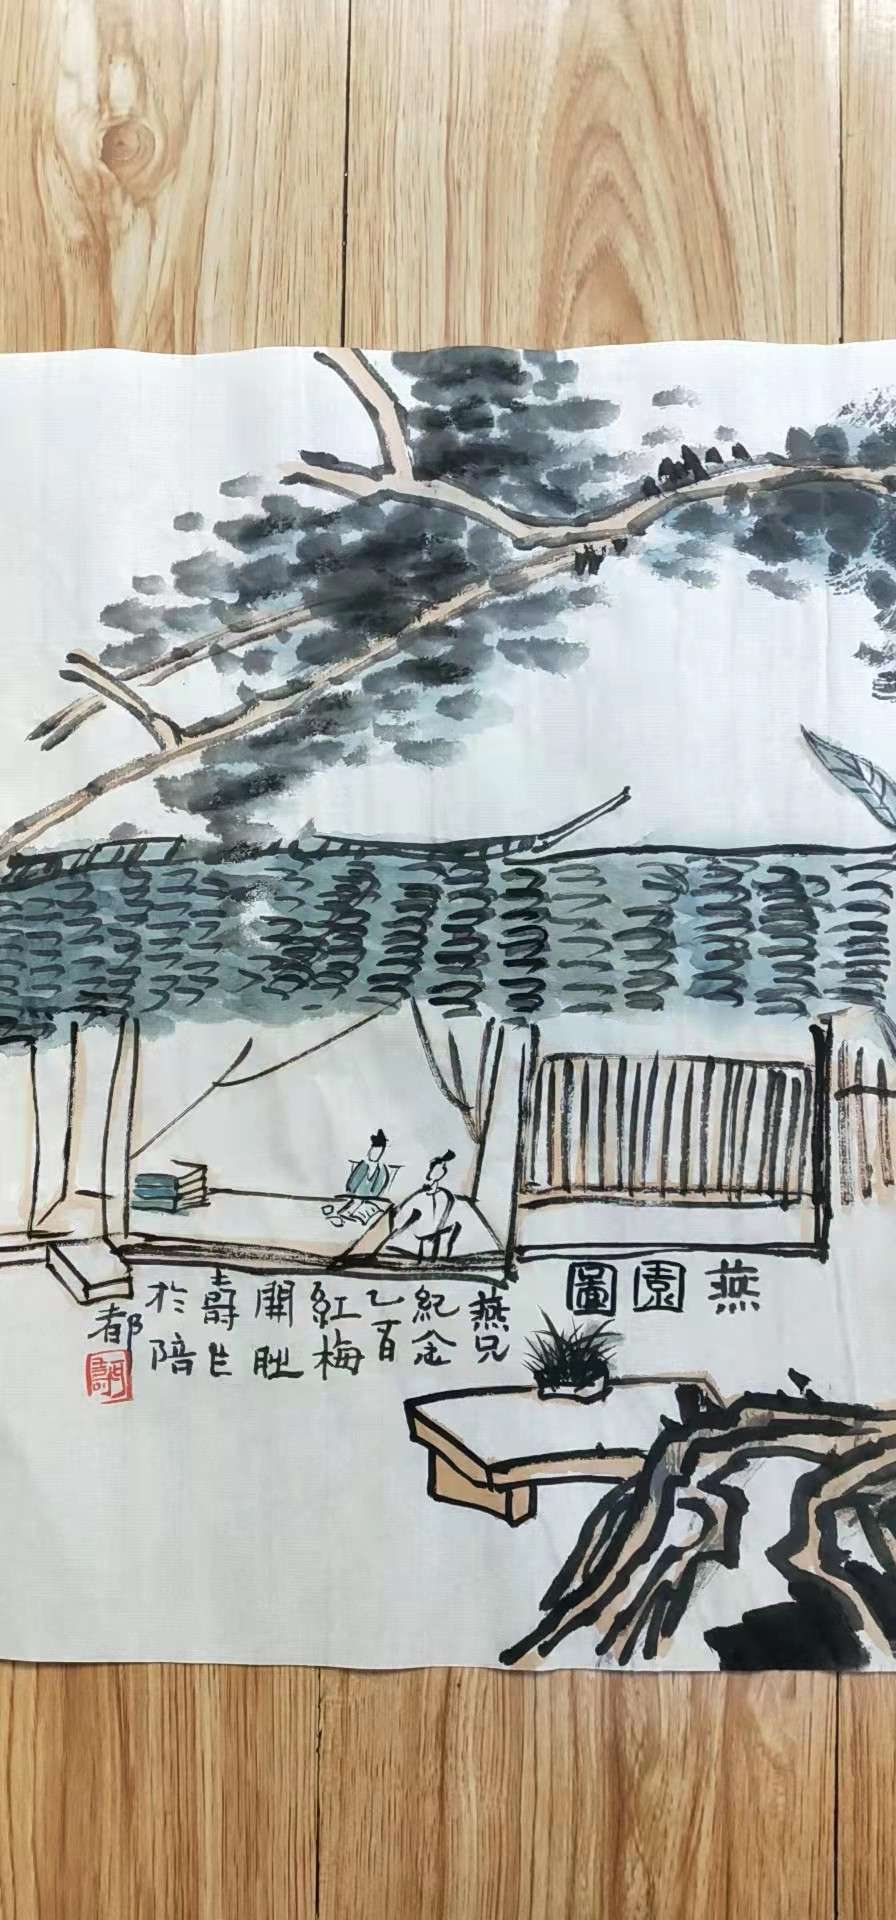 燕園圖
燕兄
紀念
乙酉
紅梅
開
壽
於陪
都